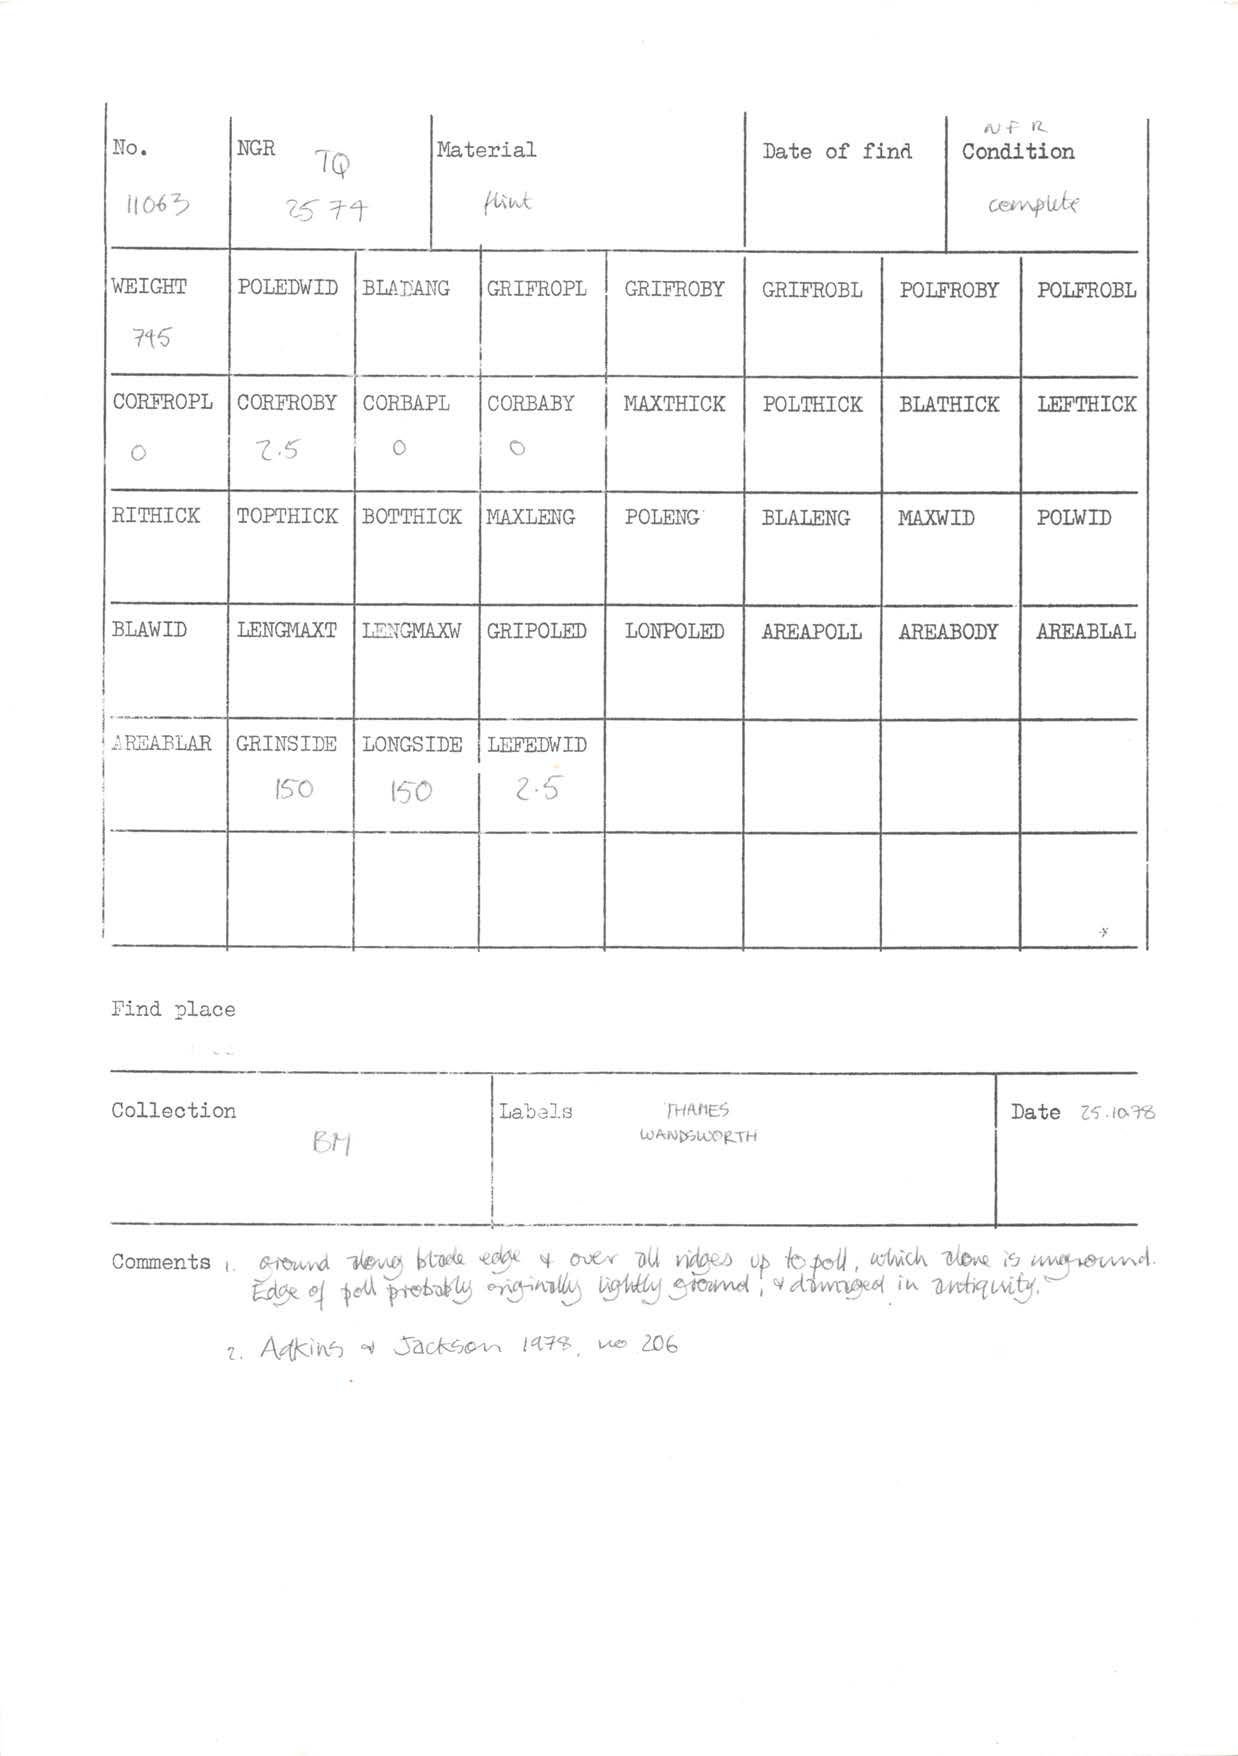 No. NGR TQ Material Date of find NFR Condition
11063 25 74 flint complete
WEIGHT POLEDWID BLADANG GRIFROPL GRIFROBY GRIFROBL POLFROBY POLFROBL
745
CORFROPL CORFROBY CORBAPL CORBABY MAXTHICK POLTHICK BLATHICK LEFTHICK
0 2.5 0 0
RITHICK TOPTHICK BOTTHICK MAXLENG POLENG BLALENG MAXWID POLWID
BLAWID LENGMAXT LENGMAXW GRIPOLED LONPOLED AREAPOLL AREABODY AREABLAL
AREABLAR GRINSIDE LONGSIDE LEFEDWID
150 150 2.5
Find place
Collection Labels THAMES Date 25.10.78
BM WANDSWORTH
Comments 1. Ground along blade edge & over all ridges up to poll, which alone is unground.
Edge of poll probably originally lightly ground, & damaged in antiquity.
2. Adkins & Jackson 1978, no 206